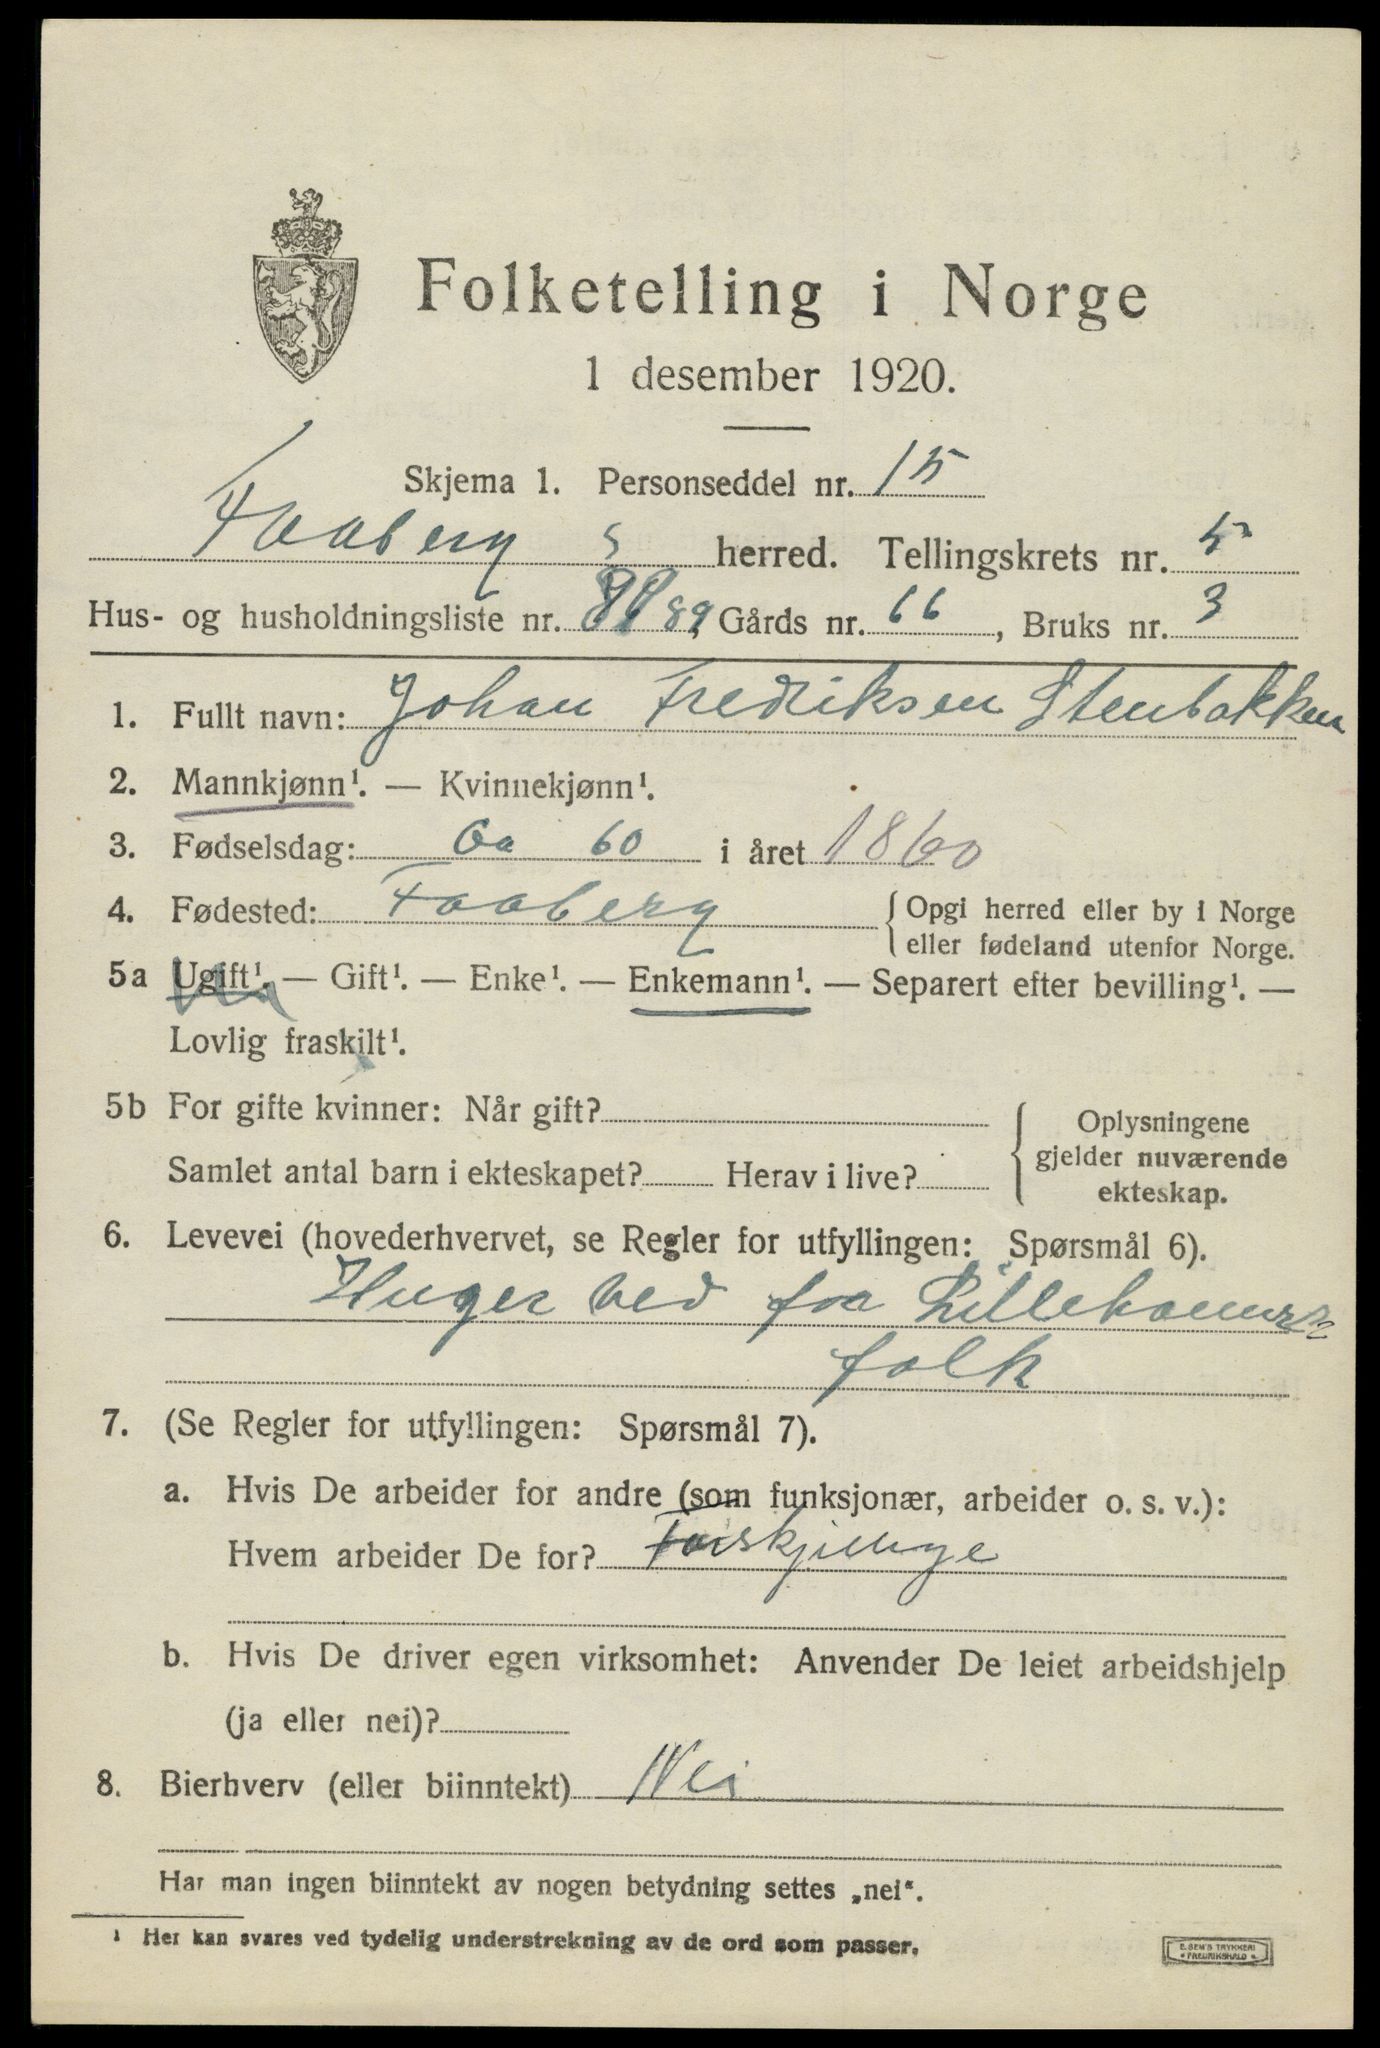 Folketelling i Norge
1 desember 1920.
Skjema 1. Personseddel nr. 15
Faaberg s herred. Tellingskrets nr. 5
Hus- og husholdningsliste nr. 89, Gårds nr. 66, Bruks nr. 3
1. Fullt navn: Johan Fredriksen Stenbakken
2. Mannkjønn¹. — Kvinnekjønn¹.
3. Fødselsdag: Ca 60 i året 1860
4. Fødested: Faaberg { Opgi herred eller by i Norge
eller fødeland utenfor Norge.
5a Ugift¹. — Gift¹. — Enke¹. — Enkemann¹. — Separert efter bevilling¹. —
Lovlig fraskilt¹.
5b For gifte kvinner: Når gift?
Samlet antal barn i ekteskapet? Herav i live?
Oplysningene
gjelder nuværende
ekteskap.
6. Levevei (hovederhvervet, se Regler for utfyllingen: Spørsmål 6).
Huger ved
folk
7. (Se Regler for utfyllingen: Spørsmål 7).
a. Hvis De arbeider for andre (som funksjonær, arbeider o. s. v.):
Hvem arbeider De for? Forskjellige
b. Hvis De driver egen virksomhet: Anvender De leiet arbeidshjelp
(ja eller nei)?
8. Bierhverv (eller biinntekt) Nei
Har man ingen biinntekt av nogen betydning settes „nei“.
¹ Her kan svares ved tydelig understrekning av de ord som passer.
E. SEM'S TRYKKERI
FREDRIKSHALD